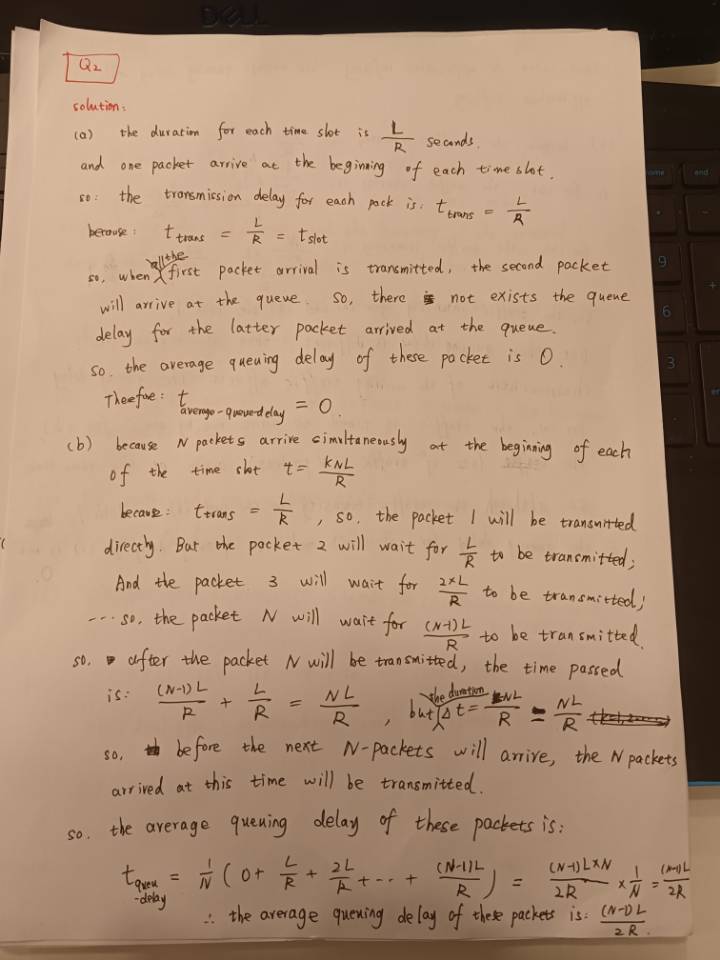 DELL
Q2
solution:
(a) the duration for each time slot is L/R seconds.
and one packet arrive at the beginning of each time slot.
so: the transmission delay for each pack is: t_trans = L/R
because: t_trans = L/R = t_slot
so, when all the first packet arrival is transmitted, the second packet
will arrive at the queue. so, there is not exists the queue
delay for the latter packet arrived at the queue.
so. the average queuing delay of these packet is 0.
Theefue: t_average-queue-delay = 0.
(b) because N packets arrive simultaneously at the beginning of each
of the time slot t = kNL/R
because: t_trans = L/R, so. the packet 1 will be transmitted
directly. But the packet 2 will wait for L/R to be transmitted;
And the packet 3 will wait for 2×L/R to be transmitted;
... so, the packet N will wait for (N-1)L/R to be transmitted.
so, after the packet N will be transmitted, the time passed
is: (N-1)L/R + L/R = NL/R, but the duration Δt = NL/R = NL/R
so, before the next N-packets will arrive, the N packets
arrived at this time will be transmitted.
so. the average queuing delay of these packets is:
t_queu-delay = 1/N (0 + L/R + 2L/R + ... + (N-1)L/R) = (N-1)L×N/2R × 1/N = (N-1)L/2R
∴ the average queuing delay of these packets is: (N-1)L/2R.
home
end
9
6
3
+
-